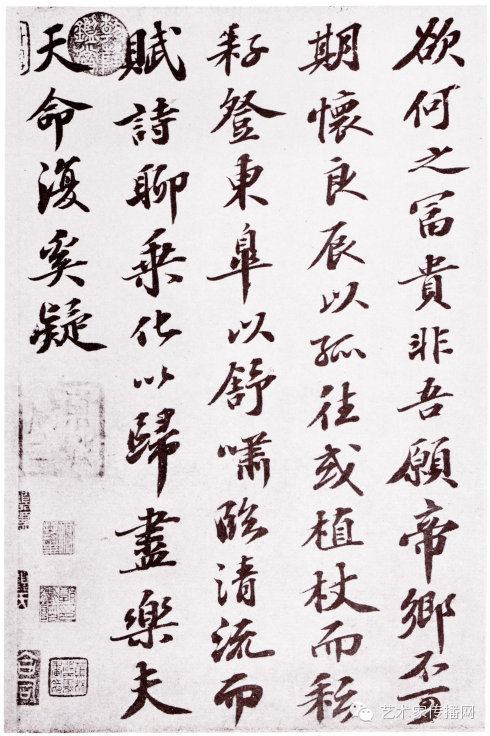 欲何之冨貴非吾願帝鄉不可
期懷良辰以孤往或植杖而耘
耔登東皐以舒嘯臨清流而
賦詩聊乗化以歸盡樂夫
天命復奚疑
艺术家传播网